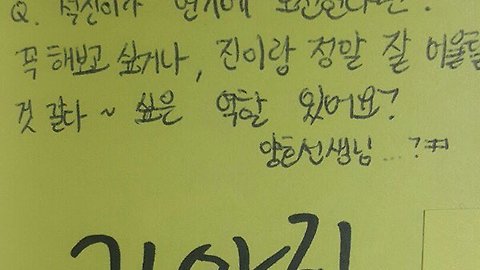 Q. 석진이가 연기에 도전한다면?
꼭 해보고 싶거나, 진이랑 정말 잘 어울릴
것 같다~ 싶은 역할 있어요?
양호선생님...?